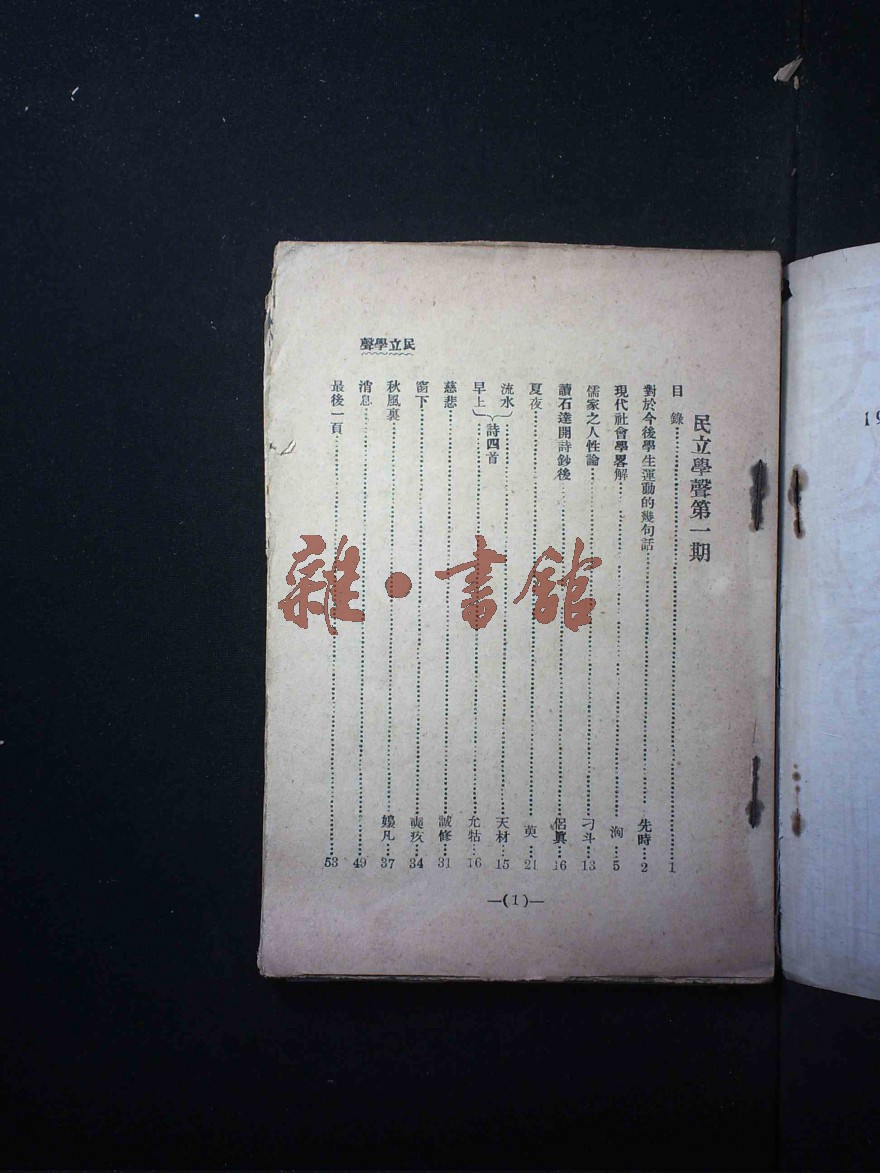 民立學聲
民立學聲第一期
目錄……1
對於今後學生運動的幾句話……先時……2
現代社會學畧解……洵……5
儒家之人性論……刁斗……13
讀石達開詩鈔後……侶真……16
夏夜……萸……21
流水……天材……15
詩四首
早上……允牯……16
慈悲……誠修……31
窗下……34
秋風裏……凡……37
消息……49
最後一頁……53
—(1)—
雜·書館
19